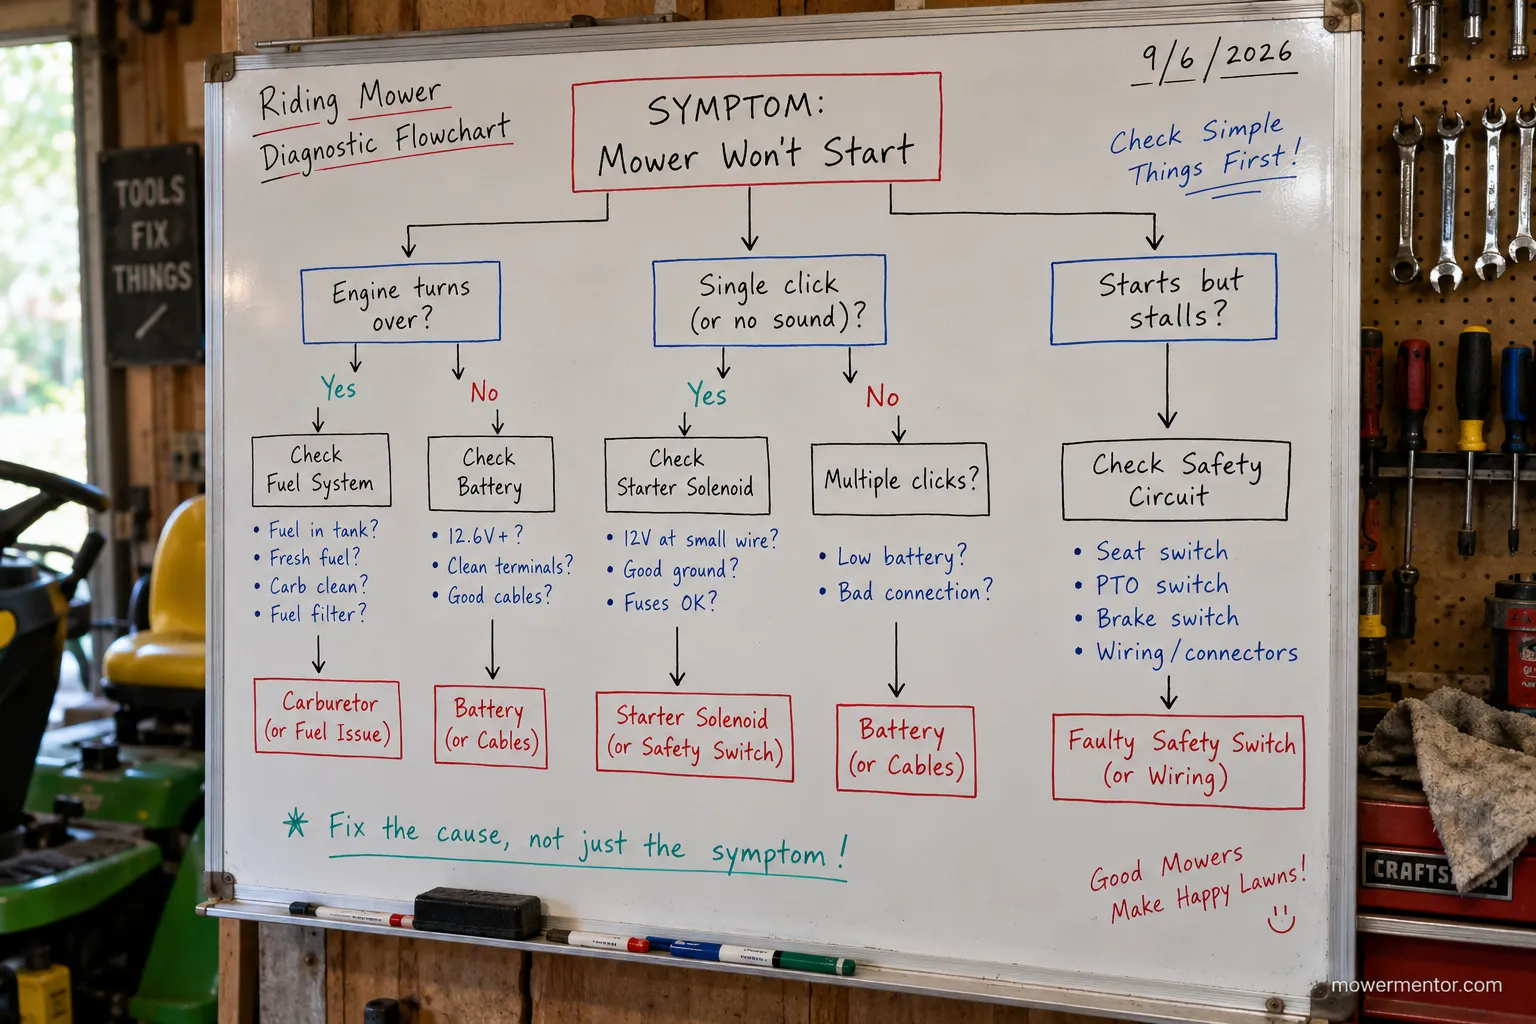 Riding Mower
Diagnostic Flowchart
SYMPTOM:
Mower Won't Start
9/6/2026
Check Simple
Things First!
TOOLS
FIX
THINGS
Engine turns
over?
Yes
No
Check
Fuel System
• Fuel in tank?
• Fresh fuel?
• Carb clean?
• Fuel filter?
Carburetor
(or Fuel Issue)
Check
Battery
• 12.6V+?
• Clean terminals?
• Good cables?
Battery
(or Cables)
Single click
(or no sound)?
Yes
No
Check
Starter Solenoid
• 12V at small wire?
• Good ground?
• Fuses OK?
Starter Solenoid
(or Safety Switch)
Multiple clicks?
• Low battery?
• Bad connection?
Battery
(or Cables)
Starts but
stalls?
Check Safety
Circuit
• Seat switch
• PTO switch
• Brake switch
• Wiring/connectors
Faulty Safety Switch
(or Wiring)
* Fix the cause, not just the symptom!
Good Mowers
Make Happy Lawns!
mowermentor.com